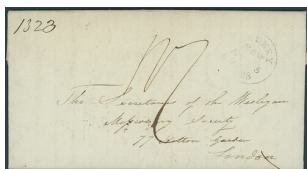 1323
The Secretaries of the Wesleyan
Missionary Society
77 Hatton Garden
London